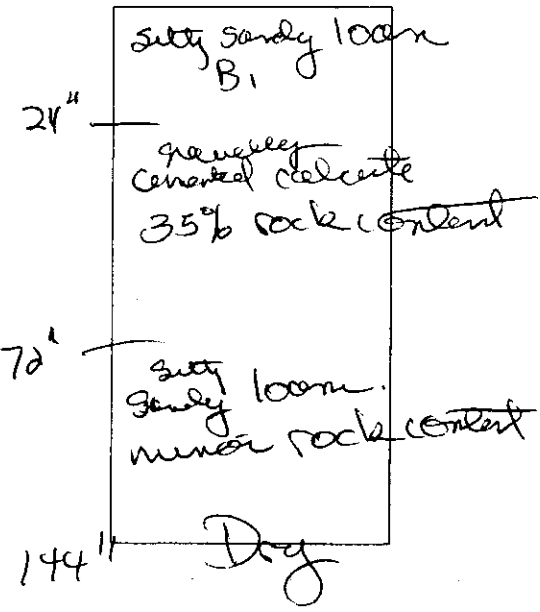 silty sandy loam
B1
24"
gravelly
cemented calcrete
35% rock content
72"
silty
sandy loam.
minor rock content
144"
Dry